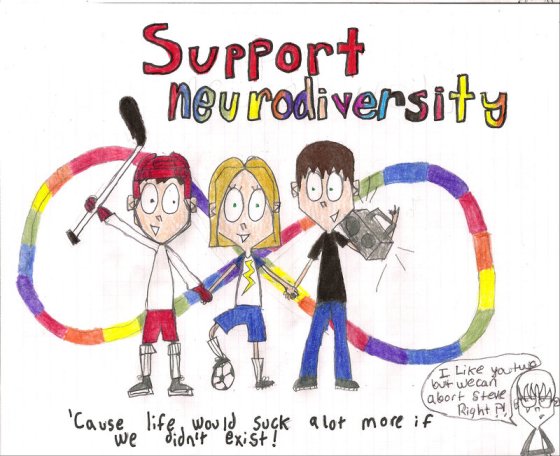 Support
neurodiversity
'Cause life would suck alot more if
we didn't exist!
I Like you two
but we can
abort Steve
Right?!